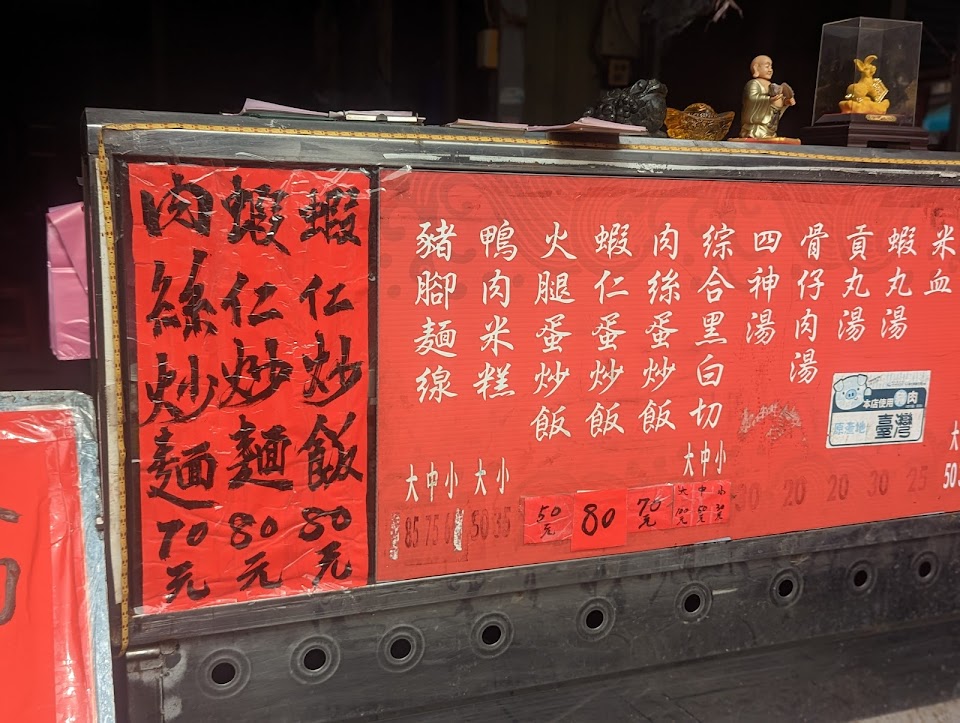 肉絲炒麵70元
蝦仁炒麵80元
蝦仁炒飯80元
豬腳麵線
大中小
85 75
鴨肉米糕
大小
50 35
火腿蛋炒飯
50元
蝦仁蛋炒飯
80
肉絲蛋炒飯
元
綜合黑白切
大中小
大100元
中50元
小30元
四神湯
30
骨仔肉湯
20
貢丸湯
20
蝦丸湯
30
米血
25
本店使用豬肉
原產地:臺灣
大
50